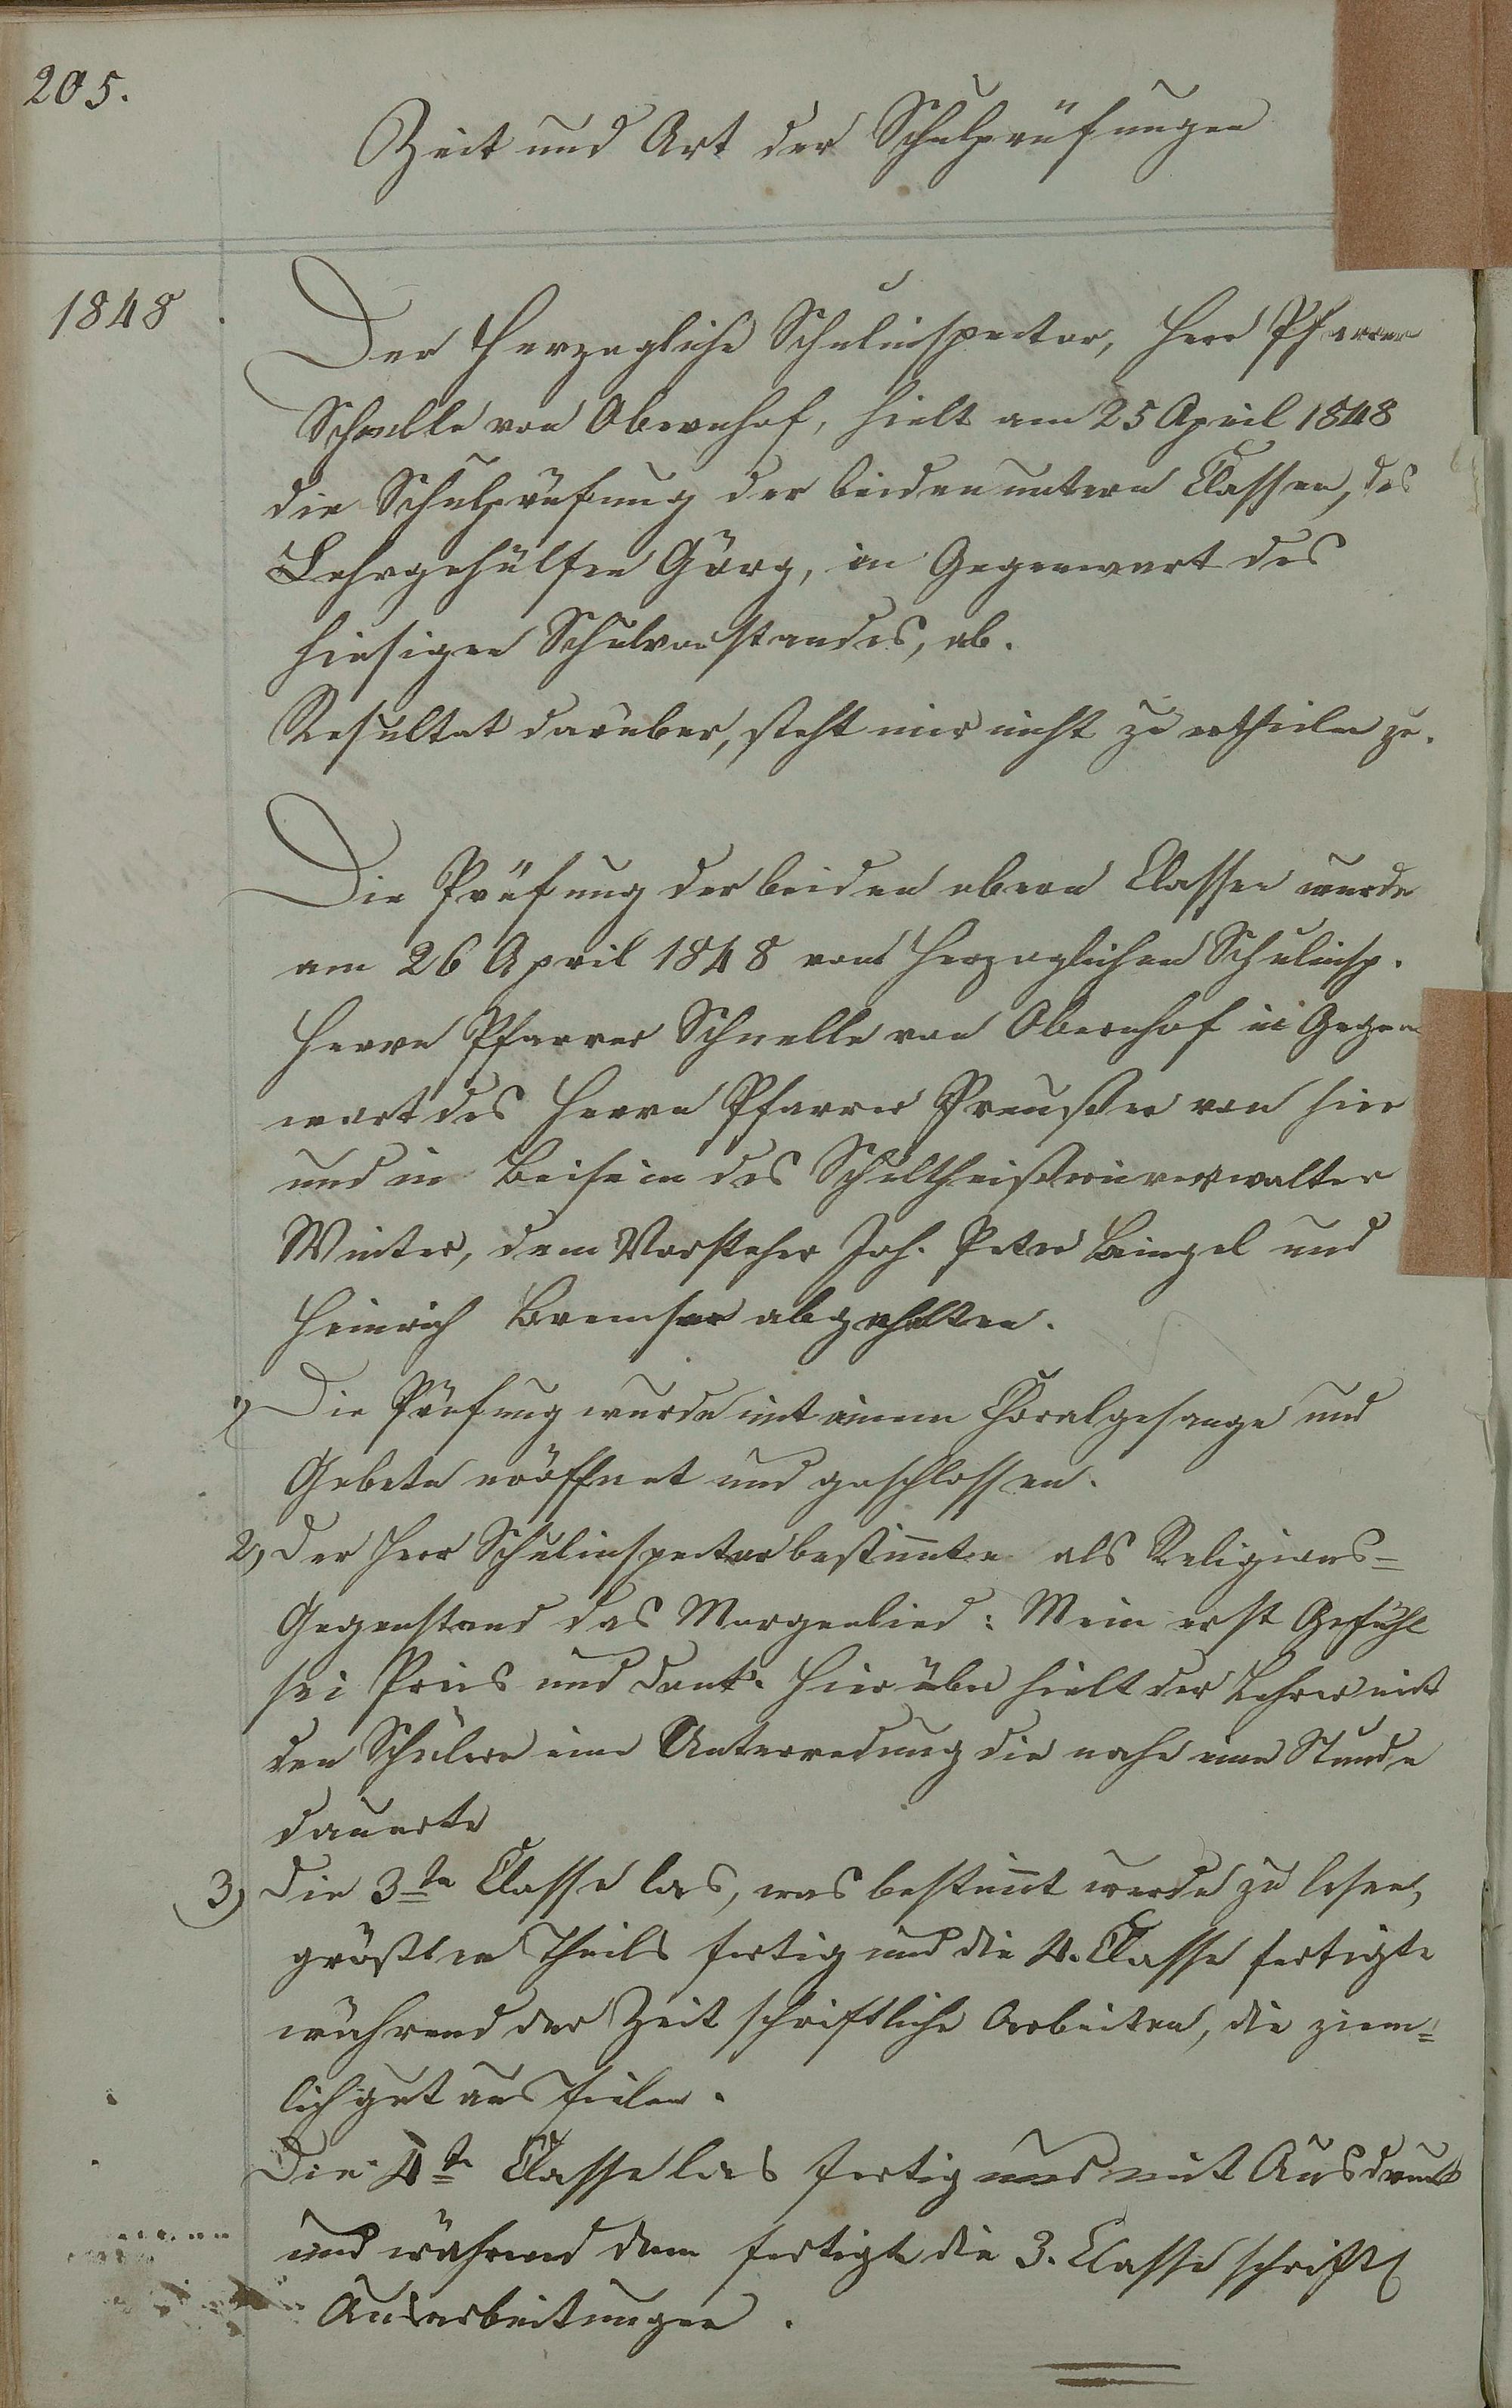 205.
Zeit und Art der Schulprüfungen
1848
Der Herzogliche Schulinspector, Herr Pfarrer
Schnelle von Obernhof, hielt am 25 April 1848
die Schulprüfung der beiden untern Classen, des
Lehrgehülfen Görg, in Gegenwart des
hiesigen Schulvorstandes, ab.
Resultat darüber, steht mir nicht zu ertheilen zu.
Die Prüfung der beiden obern Classen wurde
am 26 April 1848 vom Herzoglichen Schulinsp.
Herrn Pfarrer Schnelle von Obernhof in Gegen
wart des Herrn Pfarrer Preußer von hier
und in Beisein des Schultheißereiverwalter
Winter, dem Vorsteher Joh. Peter Bingel und
Heinrich Bremser abgehalten.
1) Die Prüfung wurde mit einem Choralgesange und
Gebete eröffnet und geschlossen.
2) Der Herr Schulinspector bestimmte als Religions=
Gegenstand das Morgenlied: Mein erst Gefühl
sei Preis und Dank. Hierüber hielt der Lehrer mit
den Schülern eine Unterredung die nahe eine Stunde
dauerte
3) Die 3te Classe las, was bestimmt wurde zu lesen,
größten Theils fertig und die 4. Classe fertigte
während der Zeit schriftliche Arbeiten, die ziem=
lich gut ausfielen.
Die 4te Classe las fertig und mit Ausdruck
und während dem fertigte die 3. Classe schriftl
Ausarbeitungen.